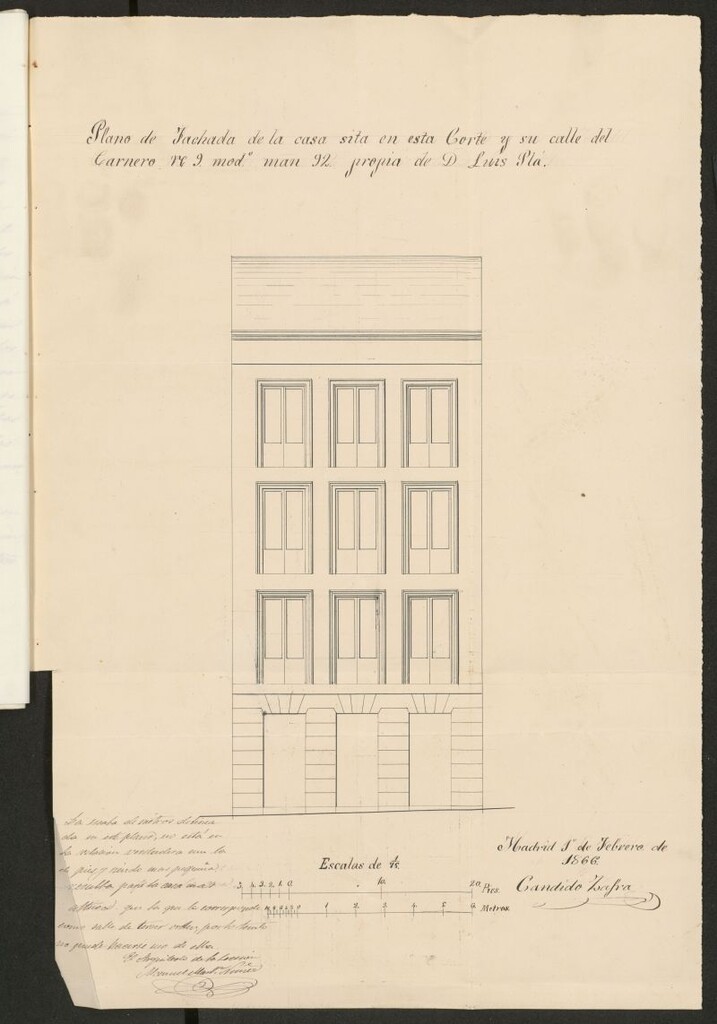 Plano de Fachada de la casa sita en esta Corte y su calle del
Carnero nº 9 modº man 92 propia de D Luis Plá.
Madrid 1º de Febrero de
1866
Candido Zafra
Escalas de
5 4 3 2 1 0 10 20 Pies.
1 2 3 4 5 6 Metros.
La escala de metros
en el plano, no está en
la relacion verdadera con la
de pies, y siendo mas pequeña
resulta para la casa mas
altura que la que le corresponde
como calle de tercer orden, por lo tanto
no puede hacerse uso de ella
El Arquitecto de la